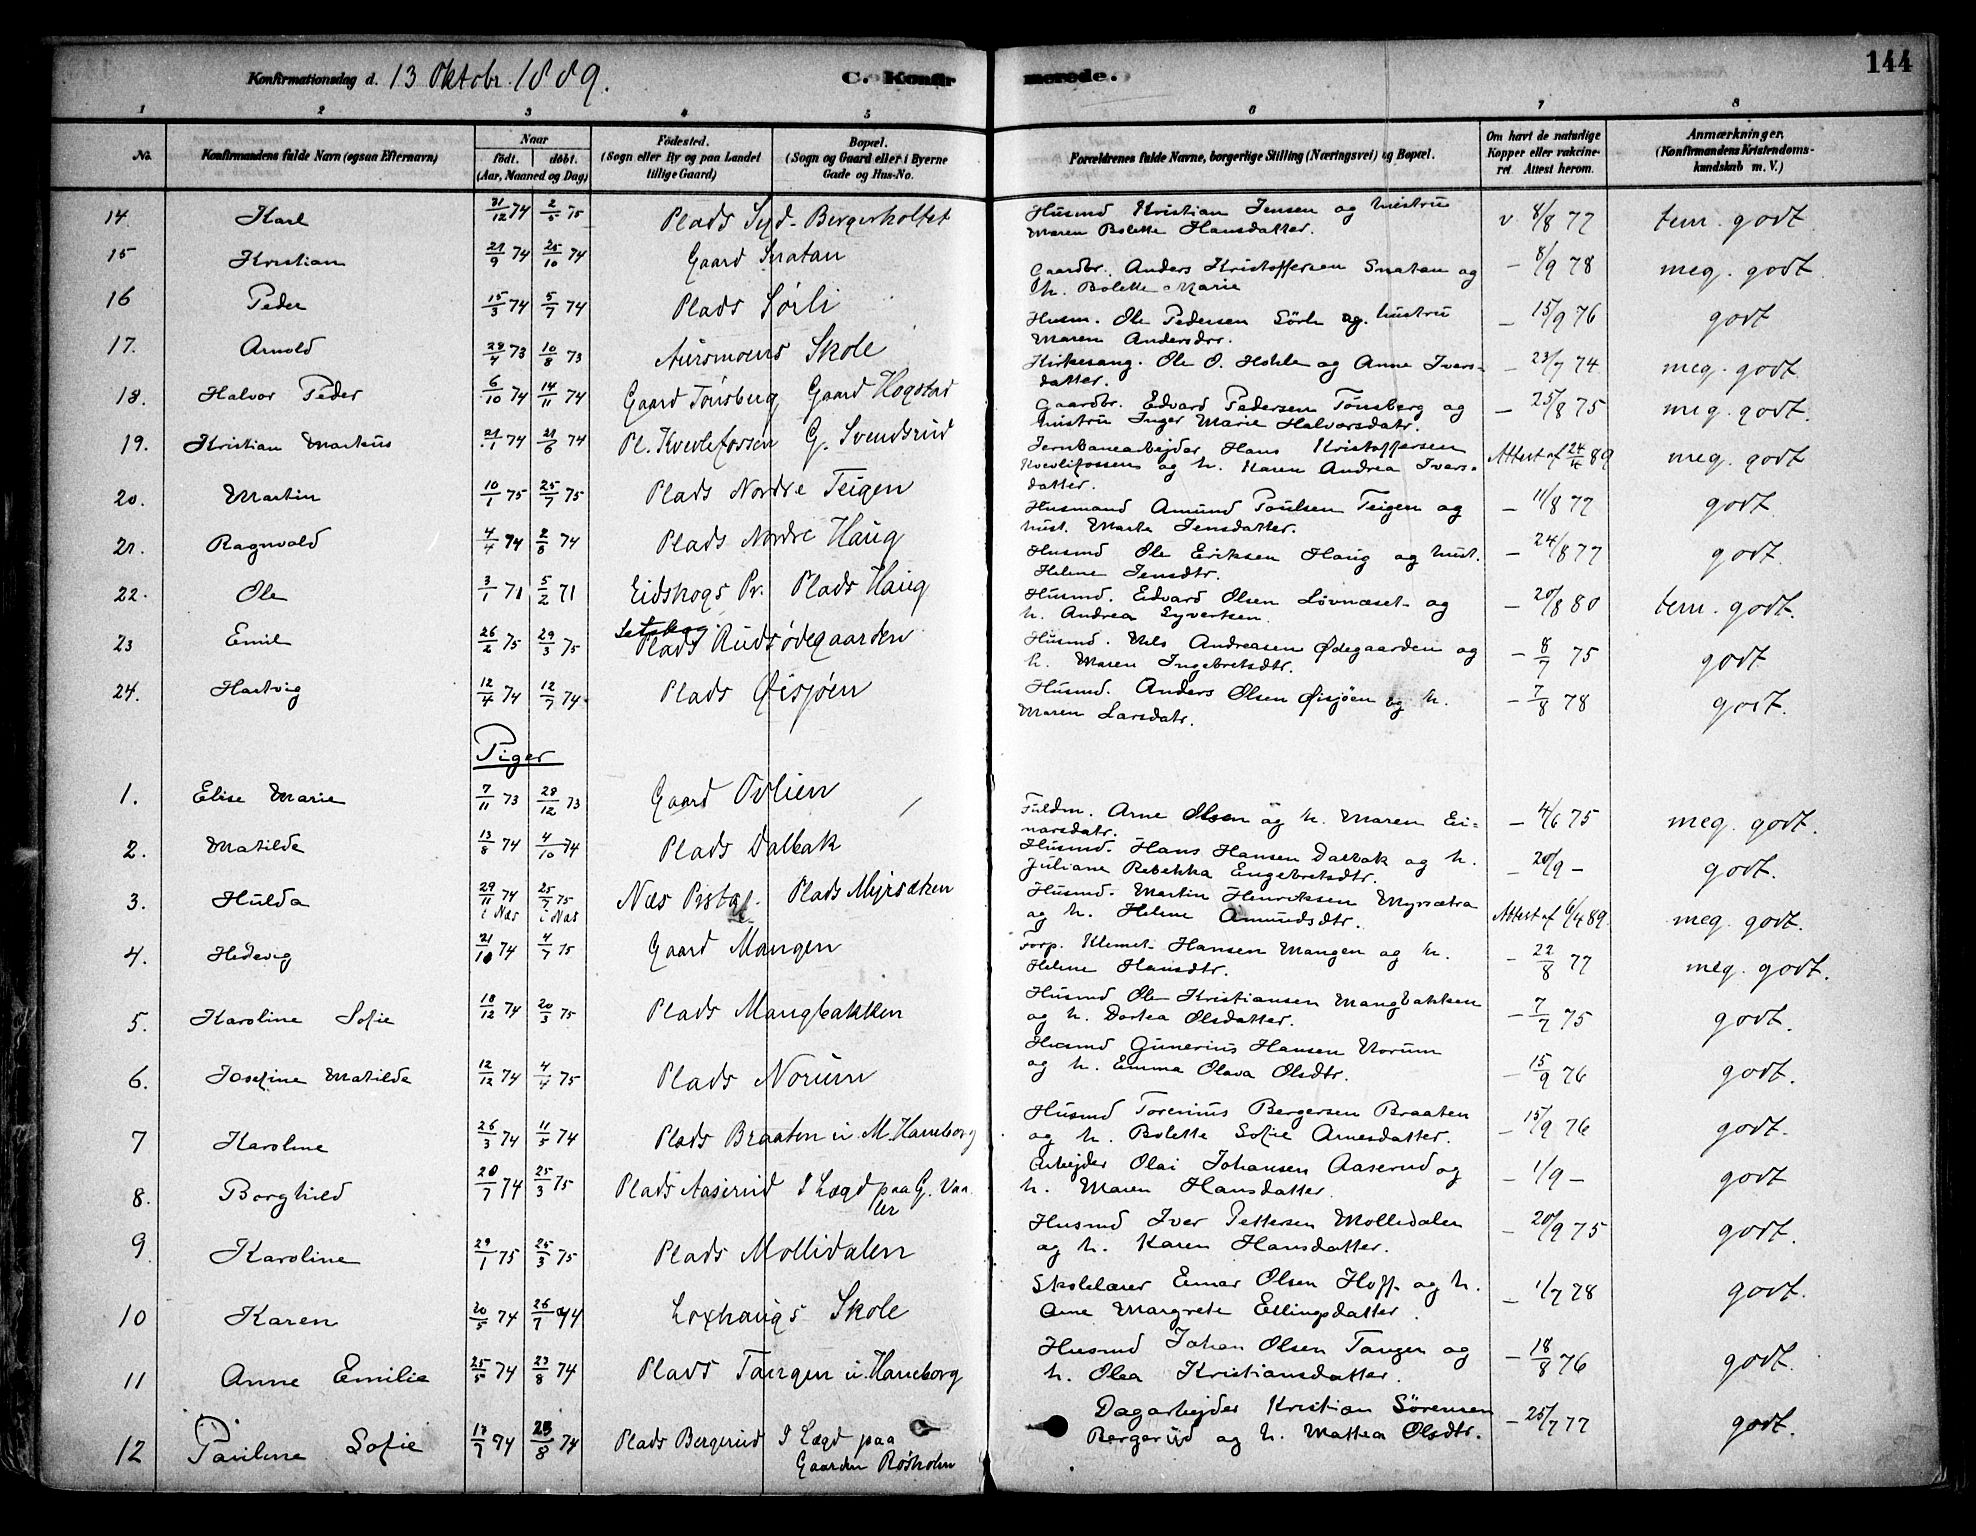 Konfirmationsdag d. 13 Oktobr. 1889. C. Konfirmerede. 144
1 2 3 4 5 6 7 8
No. Konfirmandens fulde Navn (ogsaa Efternavn) Naar født. døbt. (Aar, Maaned og Dag) Fødested. (Sogn eller By og paa Landet tillige Gaard) Bopæl. (Sogn og Gaard eller i Byerne Gade og Hus-No. Forældrenes fulde Navne, borgerlige Stilling (Næringsvei) og Bopæl. Om havt de naturlige Kopper eller vakcineret. Attest herom. Anmærkninger, (Konfirmandens Kristendomskundskab m. V.)
14. Karl 31/12 74 2/5 75 Plads Syd-Bergerholtet Husmd Kristian Jensen og hustru v 8/8 77 tem. godt.
Maren Bolette Hansdatter.
15 Kristian 21/9 74 25/10 74 Gaard Snatan Gaardbr. Anders Kristoffersen Snatan og – 8/9 78 meg. godt.
h. Bolette Marie
16 Peder 15/3 74 5/7 74 Plads Sørli Husm. Ole Pedersen Sörli og hustru – 15/9 76 godt
Maren Andersdtr.
17. Arnold 28/4 73 10/8 73 Aursmoens Skole Kirkesang. Ole O. Hohle og Anne Ivers- – 23/7 74 meg. godt.
datter.
18. Halvor Peder 6/10 74 14/11 74 Gaard Tønsberg Gaard Hogstad Gaardbr. Edvard Pedersen Tønsberg og – 25/8 75 meg. godt.
hustru Inger Marie Halvorsdatr.
19. Kristian Markus 21/1 74 21/6 74 Pl. Kvevlefossen G. Svendsrud Jernbanearbejder Hans Kristoffersen Attest af 24/4 89 meg. godt
Kvevlifossen og h. Karen Andrea Ivers-
datter.
20. Martin 10/1 75 25/7 75 Plads Nordre Teigen Husmand Amund Poulsen Teigen og – 11/8 77 godt
hust. Marte Jensdatter.
21. Ragnvald 4/4 74 2/8 74 Plads Nordre Haug Husmd Ole Eriksen Haug og hust. – 24/8 77 godt.
Helene Jensdtr.
22. Ole 3/1 71 5/2 71 Eidskogs Pr. Plads Haug Husmd. Edvard Olsen Løvnæset og – 20/8 80 tem. godt.
h. Andrea Eyvertsen.
23 Emil 26/2 75 29/3 75 Setskog. Plads Rudsødegaarden Husmd. Nils Andreasen Ødegaarden og – 8/7 75 godt
h. Maren Ingebretsdtr.
24. Hartvig 12/4 74 12/7 74 Plads Øisjøen Husmd. Anders Olsen Øisjøen og h. – 7/8 78 godt.
Maren Larsdatr.
Piger
1. Elise Marie 7/11 73 28/12 73 Gaard Ovlien Fuldm. Arne Olsen og h. Maren Ei- – 4/6 75 meg. godt.
narsdatr.
2. Matilde 13/8 74 4/10 74 Plads Dalbak Husmd. Hans Hansen Dalbak og h. – 20/9 – godt.
Juliane Rebekka Engebretsdtr.
3. Hulda 29/11 74 i Næs 25/7 75 i Næs Næs Prstgj. Plads Myrsæken Husmd. Martin Henriksen Myrsætra Attest af 6/4 89. meg. godt.
og h. Helene Amundsdtr.
4. Hedevig 21/10 74 4/7 75 Gaard Mangen Forp. Klemet Hansen Mangen og h. – 22/8 77 meg. godt.
Helene Hansdtr.
5. Karoline Sofie 18/12 74 20/3 75 Plads Mangbakken Husmd Ole Kristiansen Mangbakken – 7/7 75 godt.
og h. Dortea Olsdatter.
6. Josefine Matilde 12/12 74 4/4 75 Plads Norum Husmd Gunerius Hansen Norum – 15/9 76 godt.
og h. Emma Olava Olsdtr.
7 Karoline 26/3 74 11/5 74 Plads Braaten u. M. Haneborg Husmd Torenius Bergersen Braaten – 15/9 76 godt.
og h. Bolette Sofie Arnesdatter.
8. Borghild 20/7 74 25/3 75 Plads Aaserud I Lægd paa G. Vaa- Arbejder Olai Johansen Aaserud og – 1/9 – godt
ler h. Maren Hansdatter.
9 Karoline 29/1 75 25/3 75 Plads Mollidalen Husmd Iver Pettersen Mollidalen – 20/9 75 godt.
og h. Karen Hansdatter.
10 Karen 20/5 74 26/7 74 Loxhaugs Skole Skolelærer Einar Olsen Hoff og h. – 1/7 78 godt.
Ane Margrete Ellingsdatter.
11 Anne Emilie 25/5 74 23/8 74 Plads Tangen u. Haneborg Husmd Johan Olsen Tangen og – 18/8 76 godt.
h. Olea Kristiansdatter.
12 Pauline Sofie 17/7 74 23/8 74 Plads Bergerud I Lægd paa Dagarbejder Kristian Sörensen – 25/7 77 godt.
Gaarden Røsholm Bergerud og h. Mattea Olsdtr.